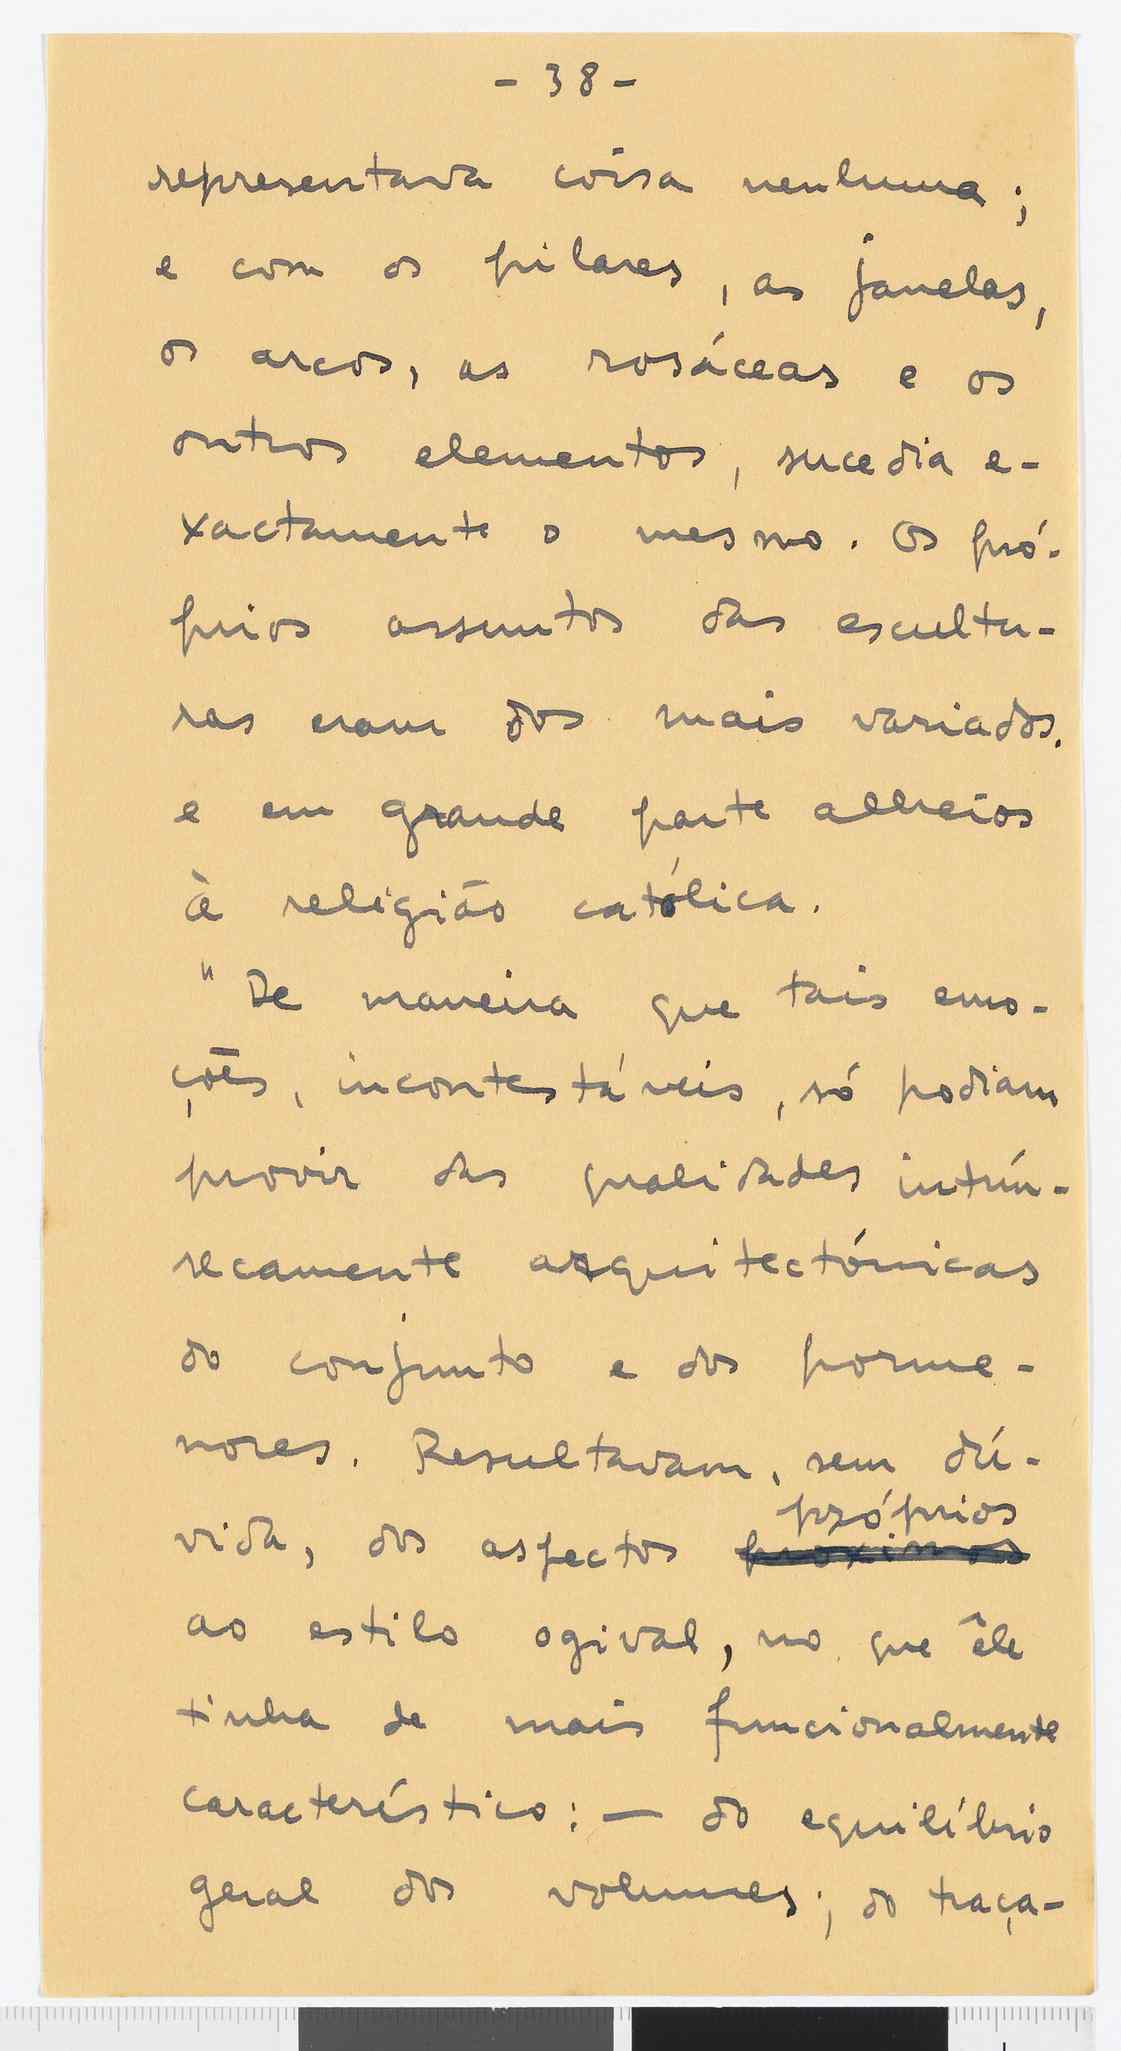 - 38 -
representava coisa nenhuma;
e com os pilares, as janelas,
os arcos, as rosáceas e os
outros elementos, sucedia e-
xactamente o mesmo. Os pró-
prios assuntos das escultu-
ras eram dos mais variados.
e em grande parte alheios
à religião católica.
" De maneira que tais emo-
ções, incontestáveis, só podiam
provir das qualidades intrín-
secamente arquitectónicas
do conjunto e dos porme-
nores. Resultavam, sem dú-
próprios
vida, dos aspectos próximos
ao estilo ogival, no que êle
tinha de mais funcionalmente
característico: — do equilíbrio
geral dos volumes; do traça-